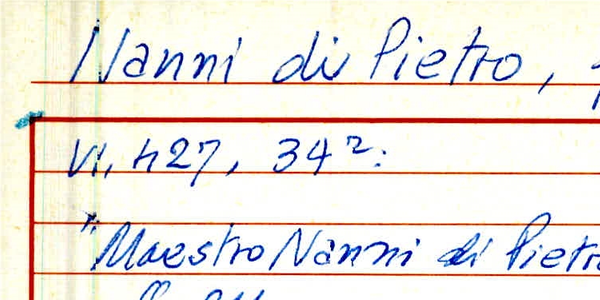 Nanni di Pietro,
VI, 427, 34²:
"Maestro Nanni di Pietro